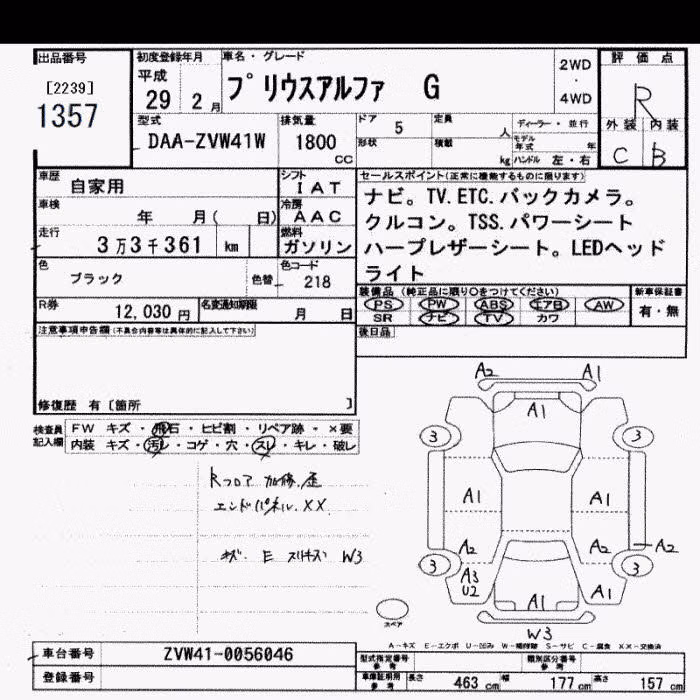 出品番号
[2239]
1357
初度登録年月
平成
29 2 月
車名・グレード
プリウスアルファ G
2WD
・
4WD
評価点
R
外装 内装
C B
型式
DAA-ZVW41W
排気量
1800
CC
ドア 5
定員
人
形状
積載
kg
ディーラー・並行
モデル
年式
年
ハンドル 左・右
車歴
自家用
シフト
IAT
車検
年 月( 日)
冷房
AAC
走行
3万3千361 km
燃料
ガソリン
色
ブラック
色替
色コード
218
R券
12,030 円
名変通知期限
月 日
セールスポイント(正常に機能するものに限ります)
ナビ。TV.ETC.バックカメラ。
クルコン。TSS.パワーシート
ハーフレザーシート。LEDヘッド
ライト
装備品 (純正品に限り○をつけてください)
PS PW ABS エアB AW
SR ナビ TV カワ
新車保証書
有・無
後日品
注意事項申告欄(不具合内容等は具体的に記入して下さい)
修復歴 有 [箇所 ]
検査員
記入欄
FW キズ・飛石・ヒビ割・リペア跡・×要
内装 キズ・汚レ・コゲ・穴・スレ・キレ・破レ
Rフロア 加修.歪
エンドパネル.XX
キズ. E スリキズ W3
A2 A1
A1
3 3
A1 A1
A2 A2 A2
3 3
A3
U2
A1 A1
W3
スペア
A-キズ E-エクボ U-凹み W-補修跡 S-サビ C-腐食 XX-交換済
車台番号
ZVW41-0056046
登録番号
型式指定番号
参考
類別区分番号
参考
車庫証明用
参考
長さ 463 cm 幅 177 cm 高さ 157 cm